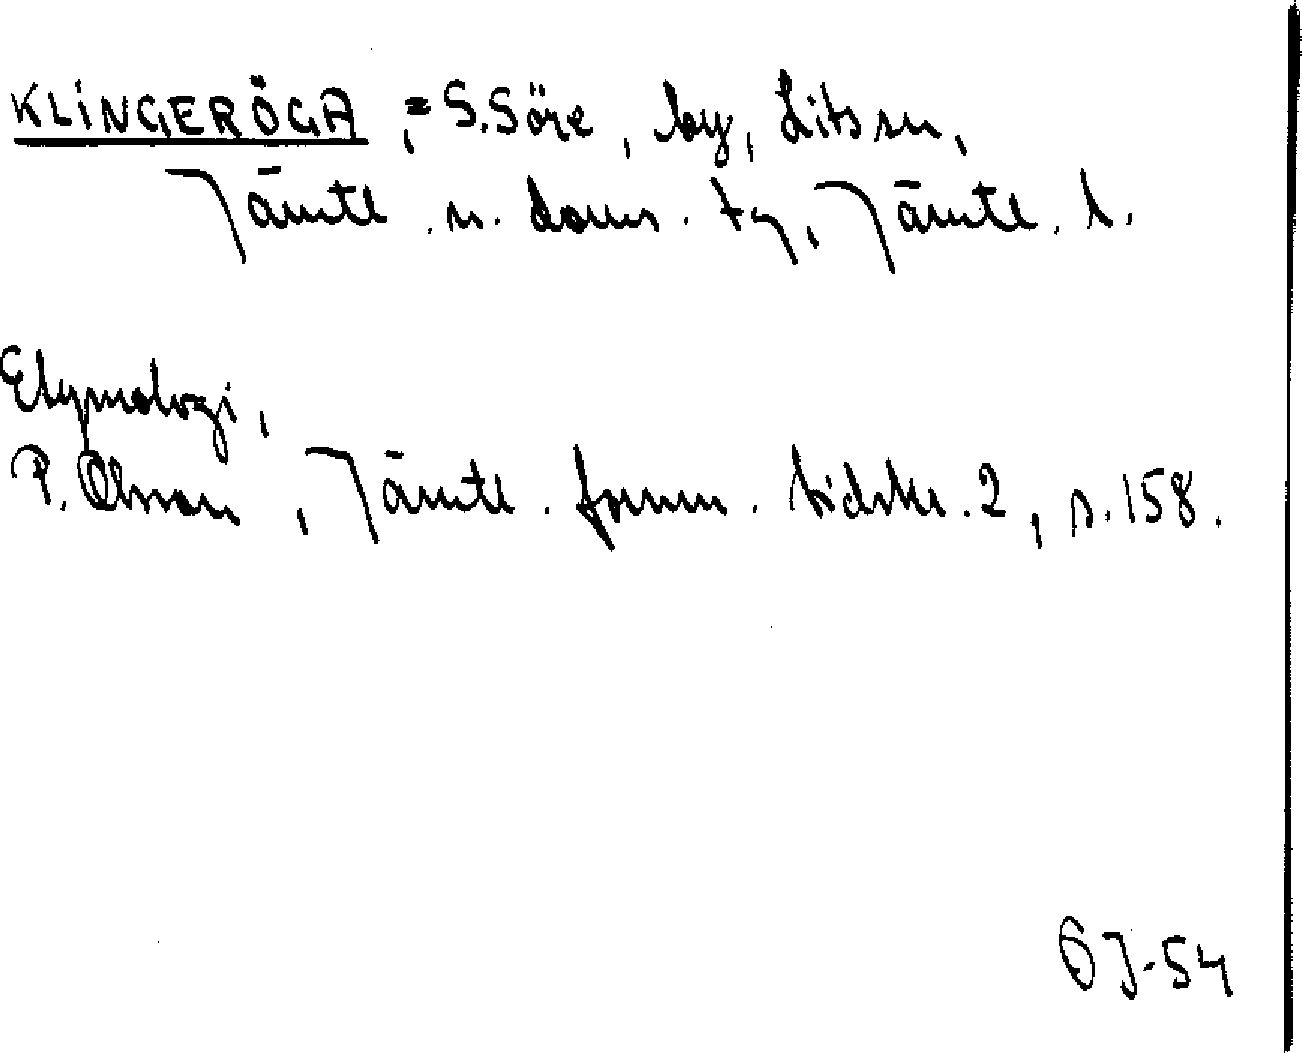 KLINGERÖGA, = S. Söre, by, Lits sn,
Jämtl. n. doms. tg, Jämtl. l.
Etymologi,
P. Olsson, Jämtl. fornm. tidskr. 2, s. 158.
GJ-54